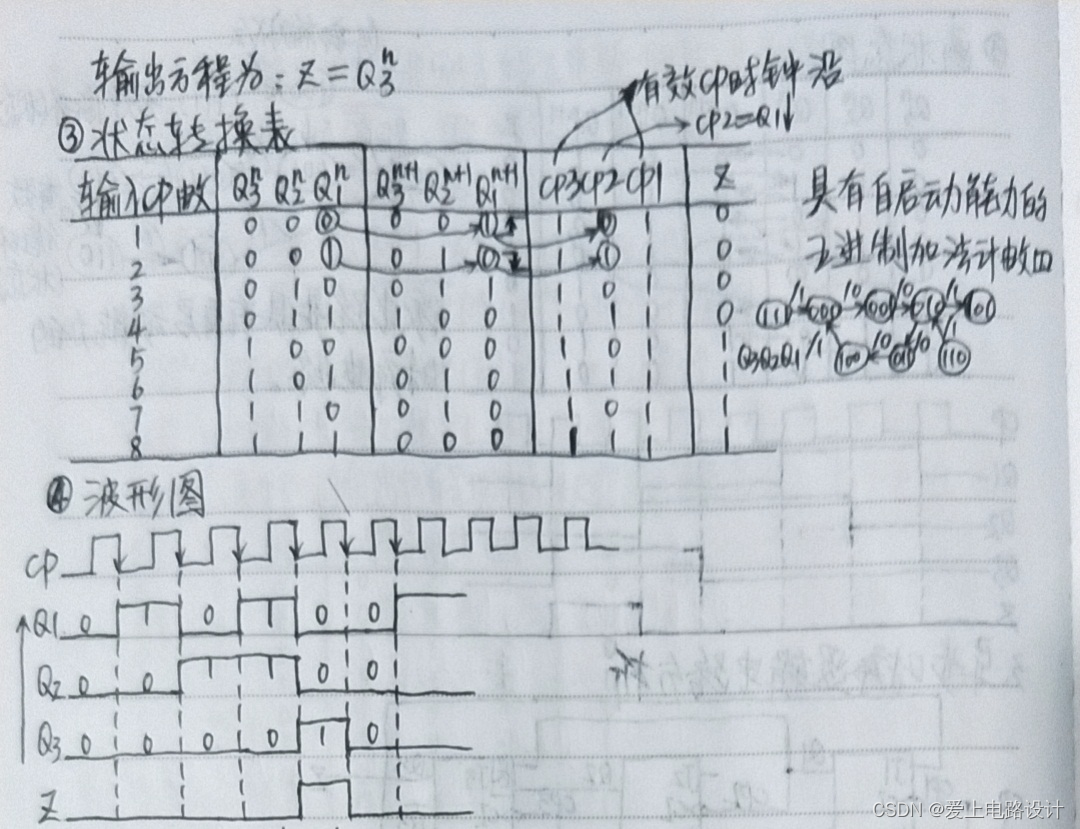 输出方程为：Z=Q₃ⁿ
有效CP时钟沿
→CP2=Q1↓
③状态转换表
输入CP数 Q₃ⁿ Q₂ⁿ Q₁ⁿ Q₃ⁿ⁺¹ Q₂ⁿ⁺¹ Q₁ⁿ⁺¹ CP3 CP2 CP1 Z
1 0 0 0 0 0 1↑ 1 0 1 0
2 0 0 1 0 1 0↓ 1 1 1 0
3 0 1 0 0 1 1 1 0 1 0
4 0 1 1 1 0 0 1 1 1 0
5 1 0 0 0 0 0 1 0 1 1
6 1 0 1 0 1 0 1 1 1 1
7 1 1 0 0 1 0 1 0 1 1
8 1 1 1 0 0 0 1 1 1 1
具有自启动能力的
五进制加法计数
111 /1 000 /0 001 /0 010 /1
Q3Q2Q1 /1 100 /0 /0 110 /1
④波形图
CP
Q1 0 1 0 1 0 0
Q2 0 0 1 1 0 0
Q3 0 0 0 0 1 0
Z
CSDN @爱上电路设计